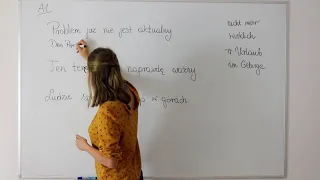 A1
Problem już nie jest aktualny
Das
Ten naprawdę ważny
Ludzie w górach
nicht mehr
wirklich
r Urlaub
im Gebirge